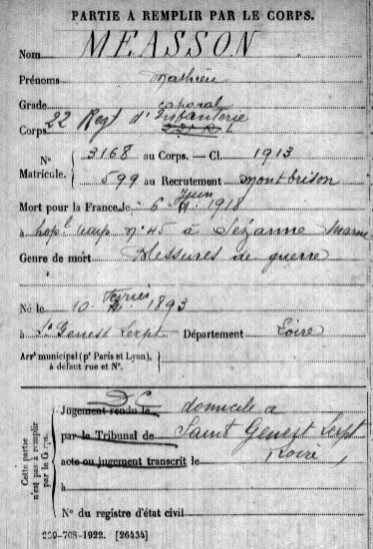 PARTIE A REMPLIR PAR LE CORPS.
Nom MEASSON
Prénoms Mathieu
Grade caporal
Corps 22 Regt d'Infanterie
N° Matricule. 3168 au Corps. — Cl. 1913
599 au Recrutement Montbrison
Mort pour la France le 6 Juin 1918
à hopl temp n°45 à Sézanne Marne
Genre de mort Blessures de guerre
Né le 10 Février 1893
à St Genest Lerpt Département Loire
Arrt municipal (pr Paris et Lyon),
à défaut rue et N°.
Cette partie n'est pas à remplir par le Corps.
D C
Jugement rendu le domicile a
par le Tribunal de Saint Genest Lerpt
acte ou jugement transcrit le (Loire)
à
N° du registre d'état civil
-708-1922. [26434]